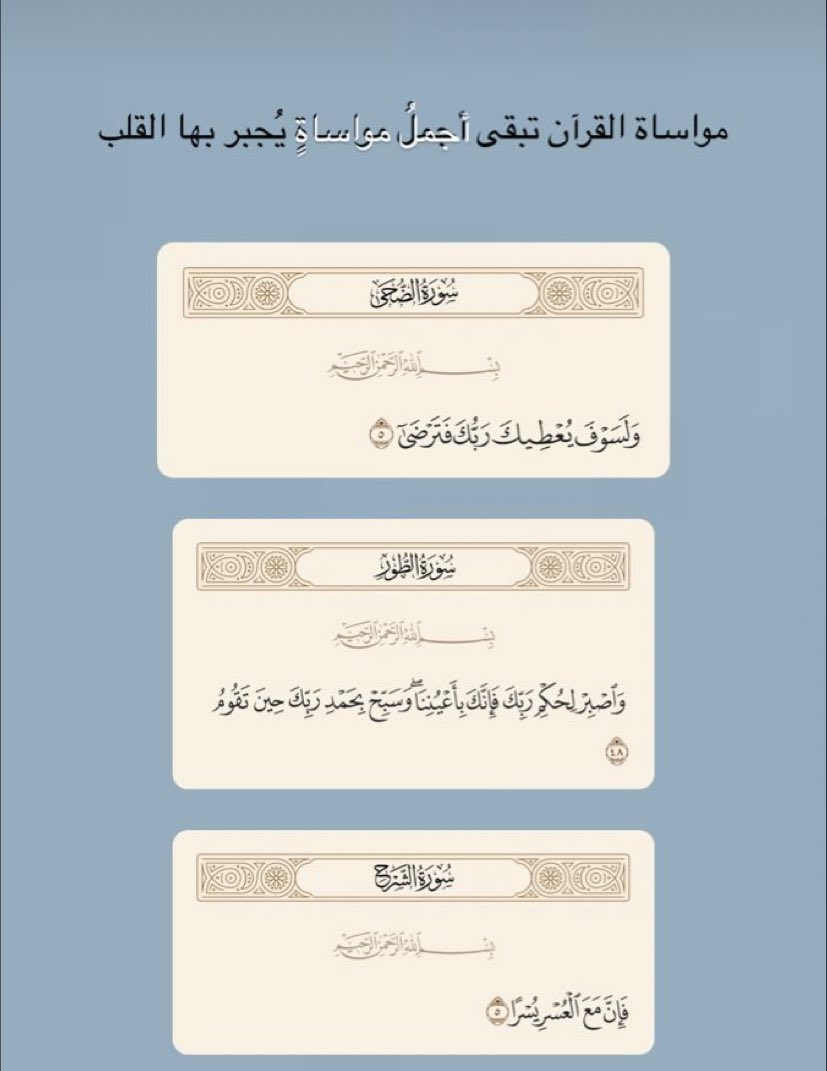 مواساة القرآن تبقى أجملُ مواساةٍ يُجبر بها القلب
سُورَةُ الضُّحَىٰ
بِسْمِ ٱللَّهِ ٱلرَّحْمَٰنِ ٱلرَّحِيمِ
وَلَسَوْفَ يُعْطِيكَ رَبُّكَ فَتَرْضَىٰٓ ٥
سُورَةُ الطُّورِ
بِسْمِ ٱللَّهِ ٱلرَّحْمَٰنِ ٱلرَّحِيمِ
وَٱصْبِرْ لِحُكْمِ رَبِّكَ فَإِنَّكَ بِأَعْيُنِنَاۖ وَسَبِّحْ بِحَمْدِ رَبِّكَ حِينَ تَقُومُ
٤٨
سُورَةُ الشَّرْحِ
بِسْمِ ٱللَّهِ ٱلرَّحْمَٰنِ ٱلرَّحِيمِ
فَإِنَّ مَعَ ٱلْعُسْرِ يُسْرًا ٥